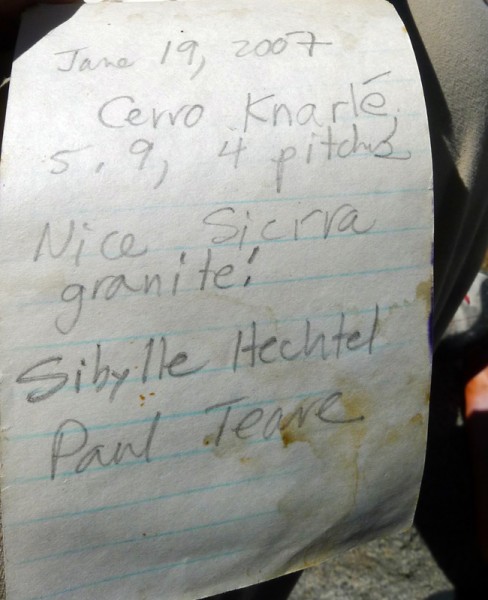 June 19, 2007
Cerro Knarlé,
5.9, 4 pitches
Nice Sierra
granite!
Sibylle Hechtel
Paul Teare